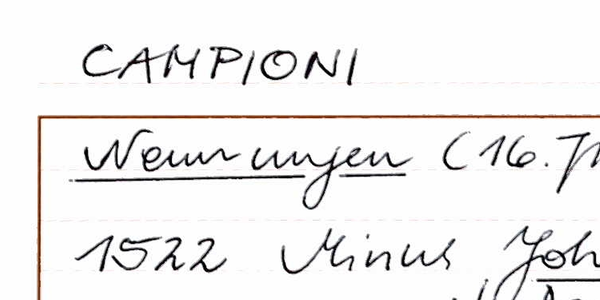 CAMPIONI
Nennungen (16. Jh
1522 Minus Joh